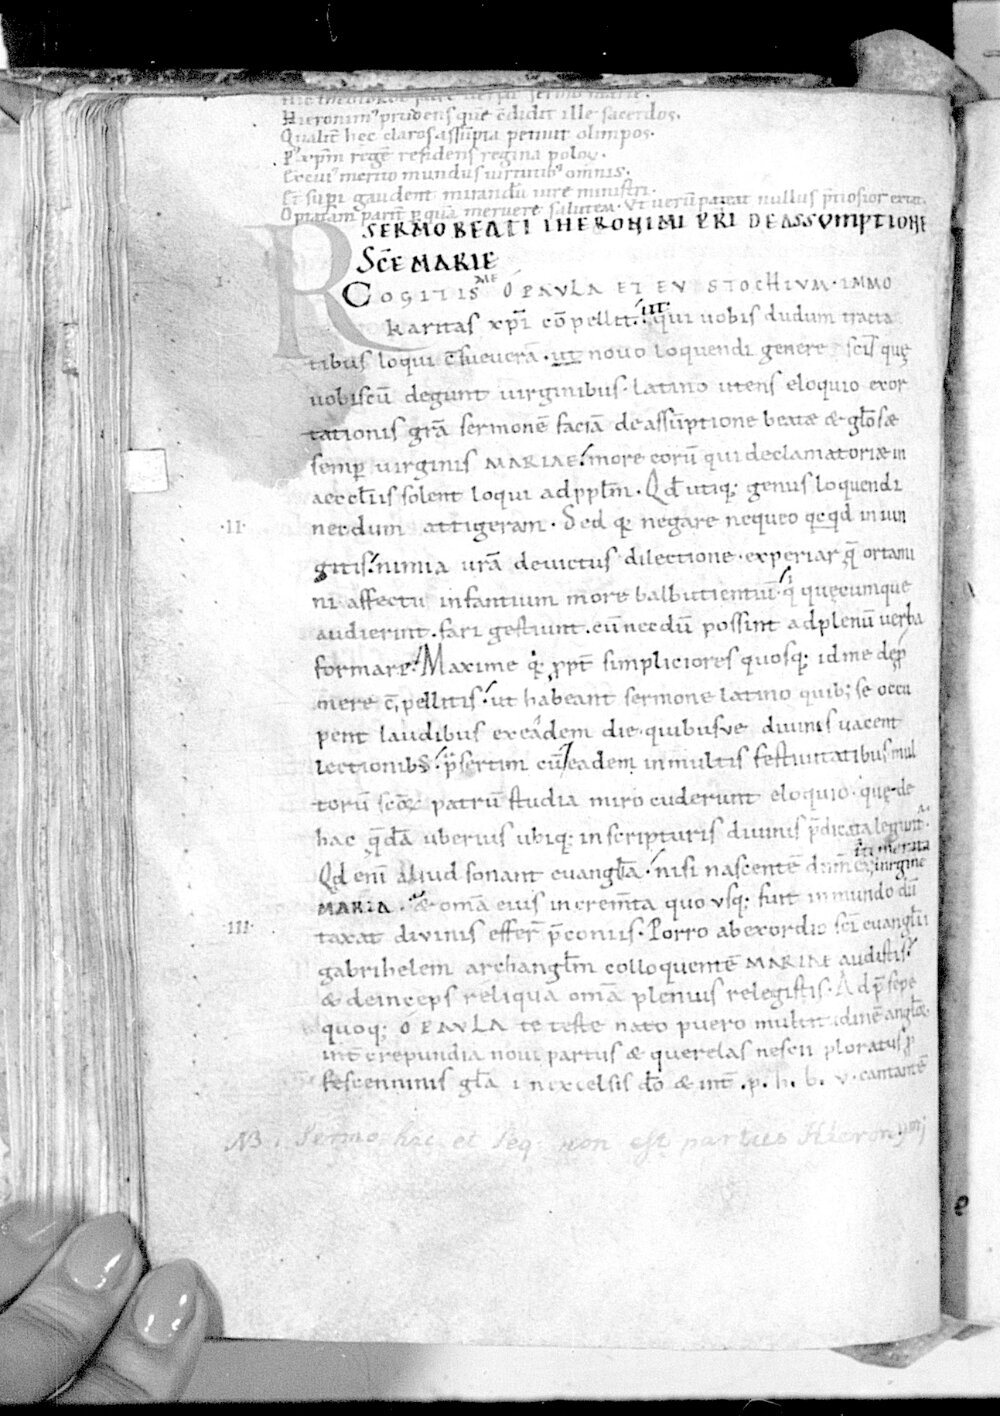 Hieronim᷒ prudens quē c̄didit ille sacerdos.
Qualit̄ hec claros assūpta petiuit olimpos.
P᷒ xp̄m rēgē residens regina poloꝝ.
merito mundus uirtutib᷒ om̄nis.
Et sup̄i gaudent mirandū iure ministri.
Optatam parit̄ ꝑ quā meruere salutem. Vt uerū pareat nullus p̄tiosior erat.
SERMO BEATI IHERONIMI P̄R̄I DE ASSVMPTIONE
SC̄E MARIE
.I. COGITIS ME Ó PAVLA ET EVSTOCHIVM. IMMO
karitas xp̄i cōpellit. ut qui uobis dudum tracta
tibus loqui c̄sueuerā. ut nouo loquendi genere scil quę
uobiscū degunt uirginibus. latino utens eloquio exor
tationis grā sermonē faciā de assūptione beatæ & gło̅sæ
semp uirginis MARIAE. more eorū qui declamatoriæ in
aeccl̄iis solent loqui ad ppl̄m. Qd̄ utiq; genus loquendi
.II. necdum attigeram. Sed q̄ negare nequeo qcqd in iun
gitis. nimia ur̄a deuictus dilectione. experiar q̄ ortami
ni affectu infantium more balbutientiū. qi quęcumque
audierint. fari gestiunt. cū necdū possint ad plenū uerba
formare. Maxime q; ꝓpt̄ simpliciores quosq; id me dep̄
mere c̄pellitis. ut habeant sermone latino quib; se occu
pent laudibus ex eadem die. quibusue diuinis uacent
lectionib᷒. p̄sertim cū eadem in multis festiuitatibus mul
torū sc̄oꝝ patrū studia miro cuderunt eloquio. quę de
hac q̄dā uberius ubiq; in scripturis diuinis p̄dicata legunt̄.
Qd eni aliud sonant euangl̄a. nisi nascentē dn̄m ex uirgine
MARIA. & om̄a eius increm̄ta quousq; fuit in mundo dū
.III. taxat diuinis effer̄ p̄coniis. Porro ab exordio sc̄i euangl̄ii
gabrihelem archangl̄m colloquentē MARIAE audistis.
& deinceps reliqua om̄a plenius relegistis. Ad p̄sepe
quoq; Ó PAVLA te teste nato puero multit̄udinē angl̄oꝝ
int̄ crepundia noui partus & querelas nescii ploratus p̄
fescenninis gl̄a in excelsis dō & int̄ .p. h. b. v. cantantē
NB. Sermo hac et seq. non est partus Hieronymi